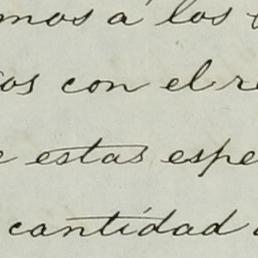 mos á los
os con el re
e estas espe
cantidad